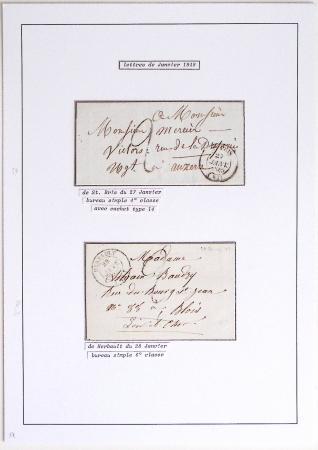 lettres de Janvier 1849
A Monsieur
Monsieur mercier
rue de la
à auxerre
27
JANV
de St. Bris du 27 Janvier
bureau simple 4° classe
avec cachet type 14
Madame
Baudry
Rue du Bourg St jean
n° 88 à Blois
Loir et Cher
HERBAULT
28
de Herbault du 28 Janvier
bureau simple 4° classe